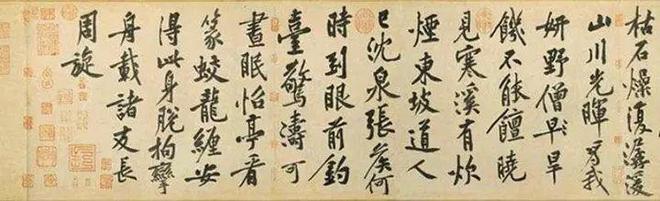 枯石燥復潺湲
山川光暉為我
妍野僧早旱
饑不能饘曉
見寒溪有炊
煙東坡道人
已沈泉張矦何
時到眼前釣
臺驚濤可
晝眠怡亭看
篆蛟龍纏安
得此身脫拘攣
舟載諸友長
周旋